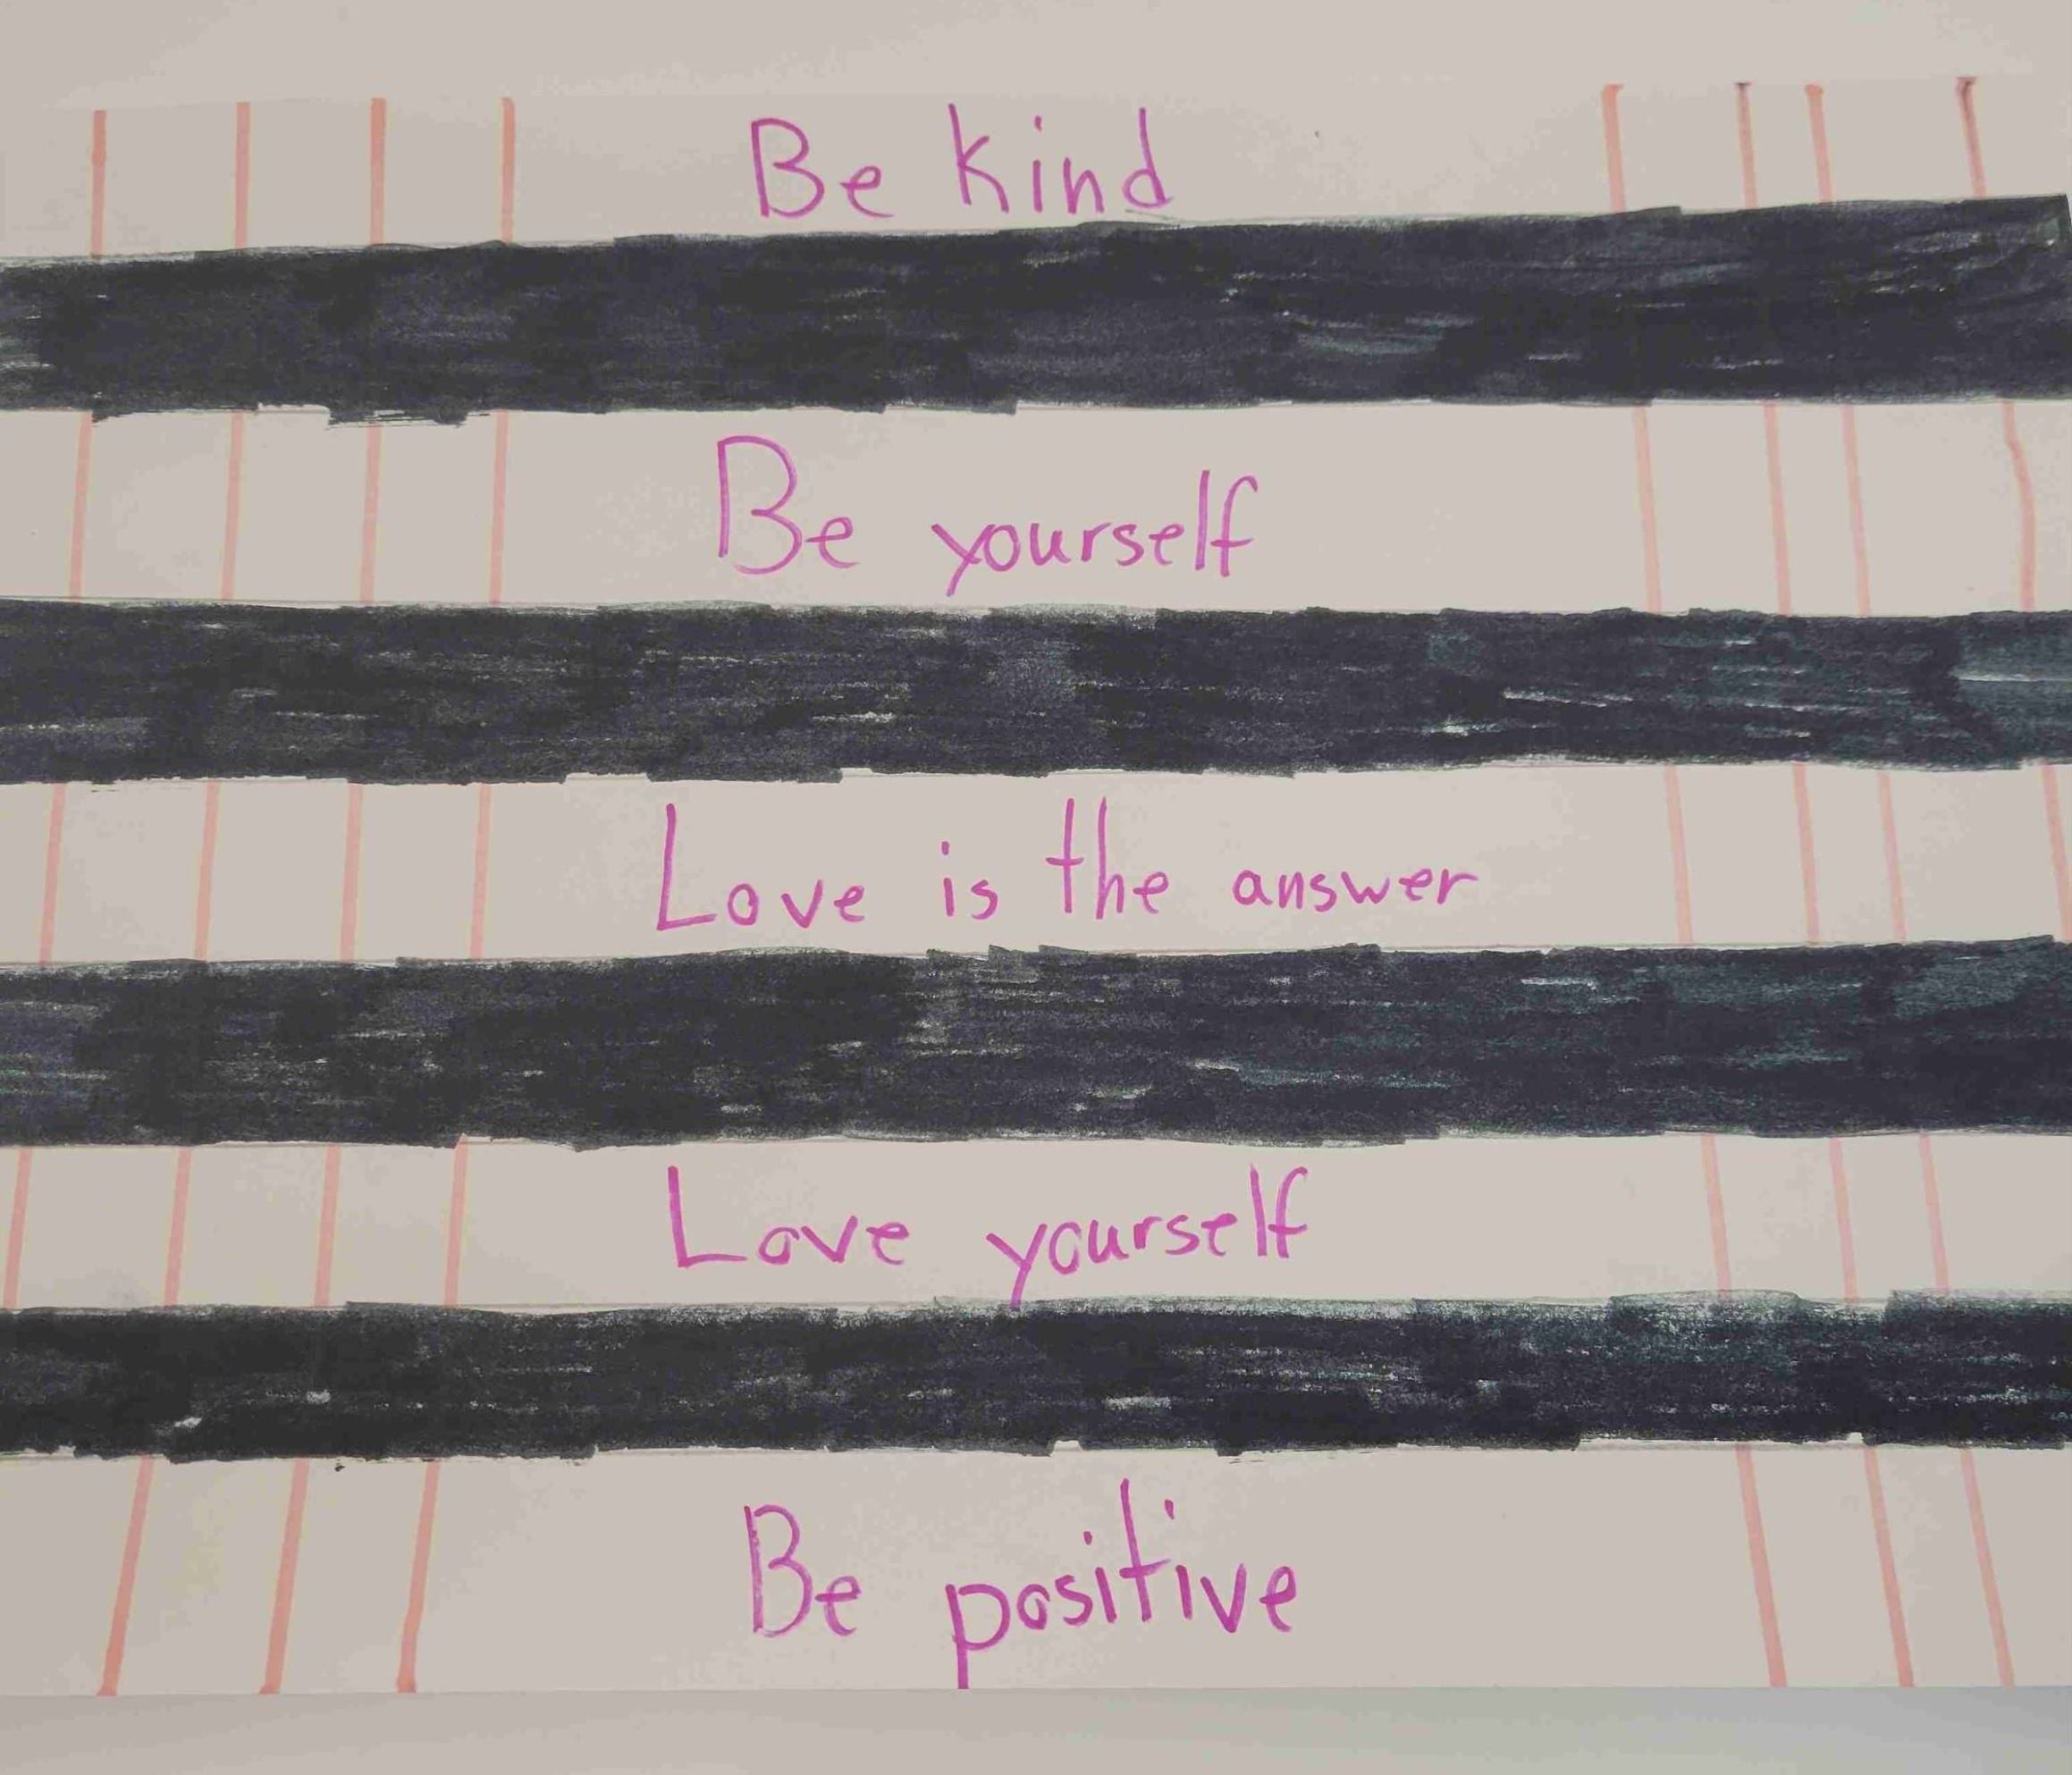 Be kind
Be yourself
Love is the answer
Love yourself
Be positive